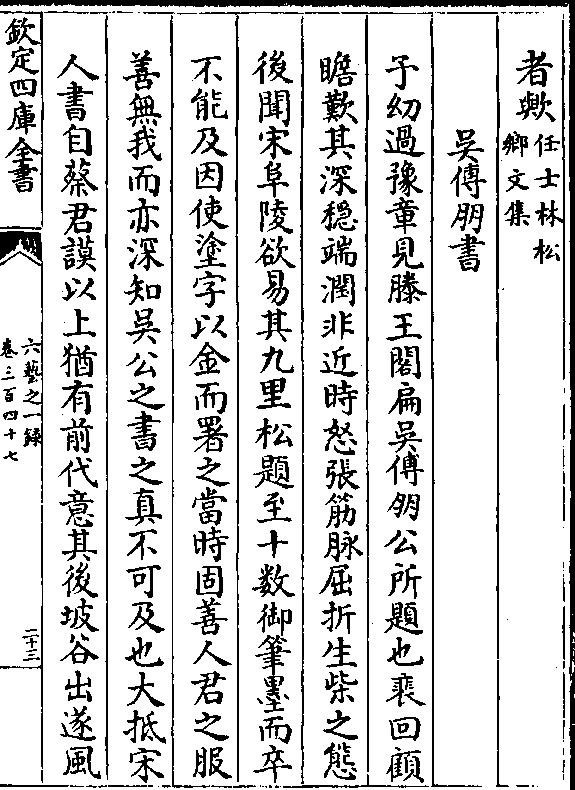 者歟任士林松
鄉文集
吳傅朋書
予幼過豫章見滕王閣扁吳傅朋公所題也裵回顧
瞻歎其深穩端潤非近時怒張筋脉屈折生柴之態
後聞宋阜陵欲易其九里松題至十数御筆墨而卒
不能及因使塗字以金而署之當時固善人君之服
善無我而亦深知吳公之書之真不可及也大抵宋
人書自蔡君謨以上猶有前代意其後坡谷出遂風
欽定四庫全書
六藝之一録
卷三百四十七
二十三